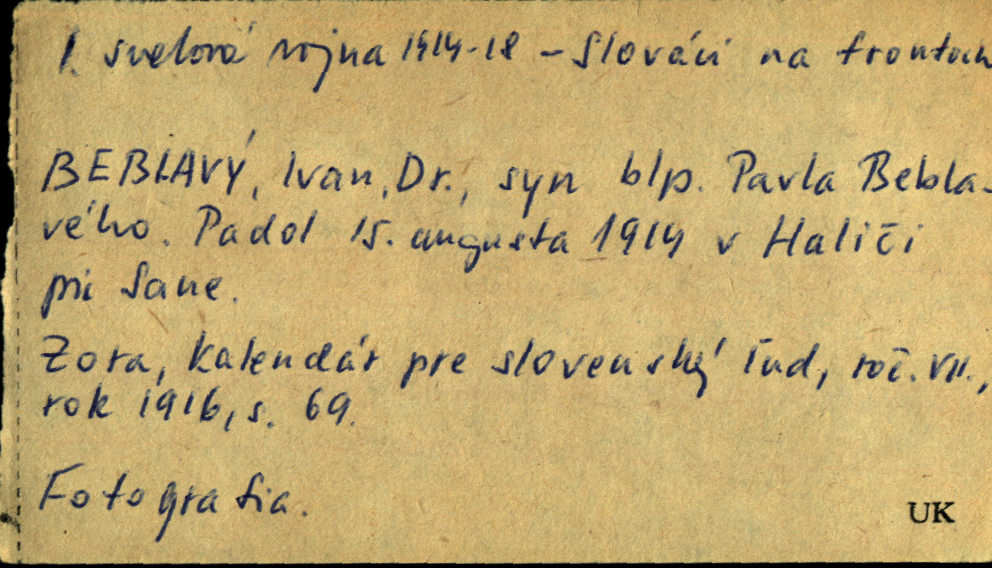 I. svetová vojna 1914-18 - Slováci na frontoch
BEBLAVÝ, Ivan, Dr., syn blp. Pavla Bebla-
vého. Padol 15. augusta 1914 v Haliči
pri Sane.
Zora, kalendár pre slovenský ľud, roč. VII.,
rok 1916, s. 69.
Fotografia.
UK